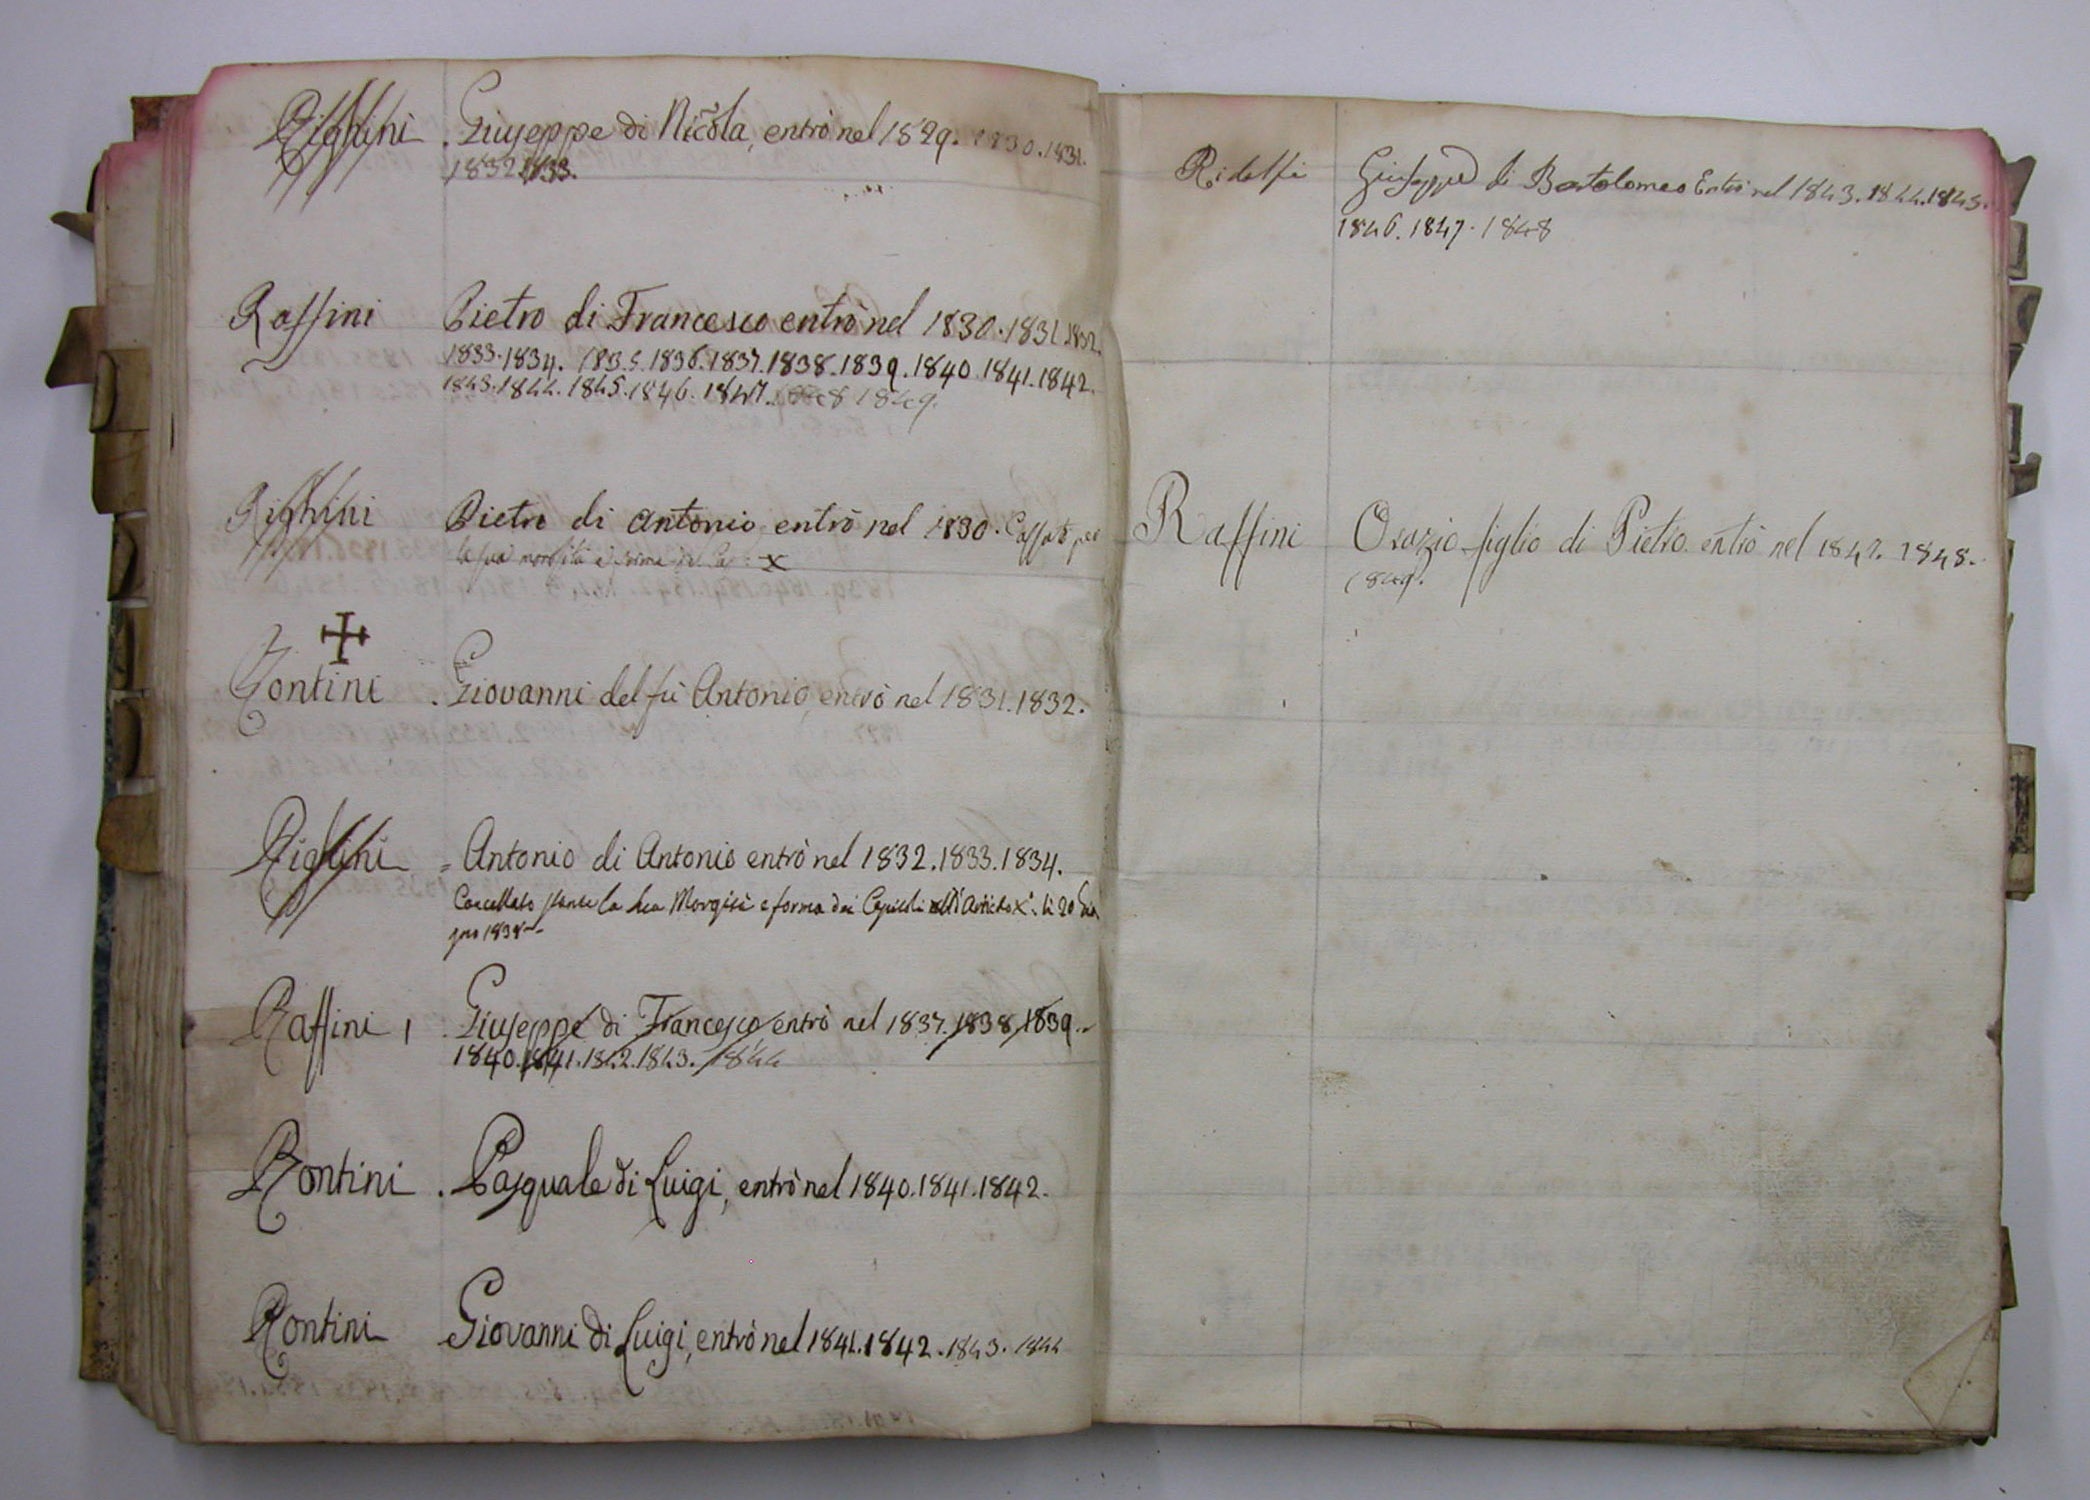 Righini . Giuseppe di Nicola, entrò nel 1829. 1830. 1831.
1832. 1833.
Raffini Pietro di Francesco entrò nel 1830. 1831 1832.
1833. 1834. 1835. 1836. 1837. 1838. 1839. 1840. 1841. 1842.
1843. 1844. 1845. 1846. 1847. 1848 1849.
Righini Pietro di Antonio entrò nel 1830. Cassato per
la sua
Rontini . Giovanni del fù Antonio, entrò nel 1831. 1832.
Righini = Antonio di Antonio entrò nel 1832. 1833. 1834.
Cancellato stante la sua a forma dei Capitoli Articolo X°. li 20 Giu
gno 1838
Raffini . Giuseppe di Francesco entrò nel 1837. 1838. 1839.
1840. 1841. 1842. 1843. 1844
Rontini . Pasquale di Luigi, entrò nel 1840. 1841. 1842.
Rontini Giovanni di Luigi, entrò nel 1841. 1842. 1843. 1844
Ridolfi Giuseppe di Bartolomeo Entrò nel 1843. 1844. 1845.
1846. 1847. 1848
Raffini Orazio figlio di Pietro entrò nel 1847. 1848.
1849.